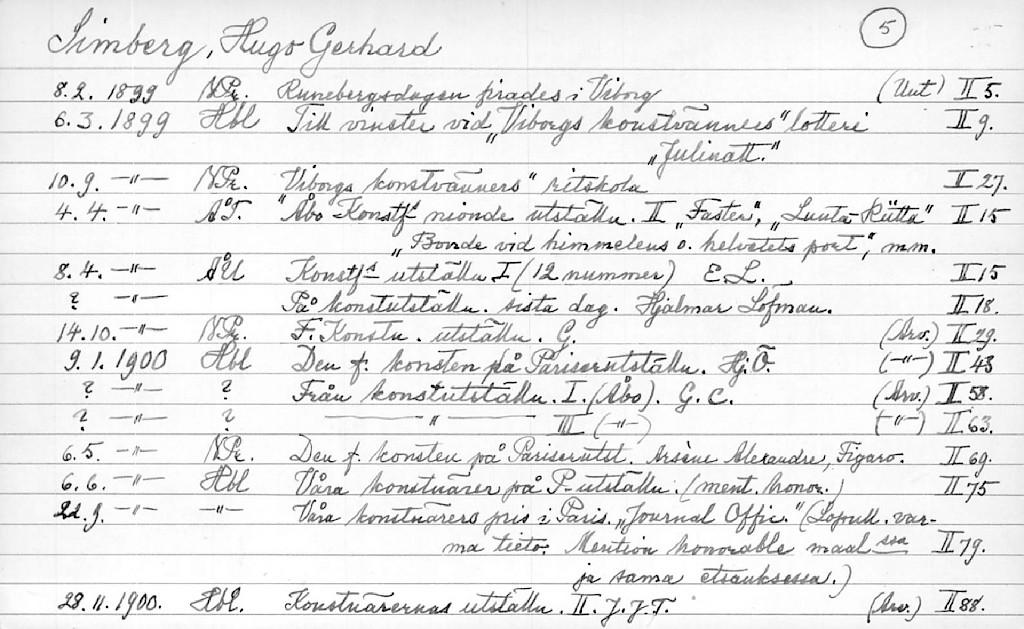 Simberg, Hugo Gerhard 5
8.2. 1899 NPr. Runebergsdagen firades i Viborg (Uut) II 5.
6.3. 1899 Hbl Till vinster vid „Viborgs konstvänners" lotteri II 9.
„Julinatt."
10.9. —"— NPr. Viborgs konstvänners" ritskola II 27.
4.4. —"— ÅT. "Åbo Konstf" nionde utställn. II „Faster", „Luuta-Riitta" II 15
„Bonde vid himmelens o. helvetets port", m.m.
8.4. —"— ÅU Konstfs utställn. I (12 nummer) E.L. II 15
? —"— På konstutställn. sista dag. Hjalmar Löfman. II 18.
14.10. —"— NPr. F. Konstn. utställn. G. (Arv.) II 29.
9.1. 1900 Hbl Den f. konsten på Pariserutställn. Hj.Ö. (—"—) II 43
? —"— ? Från konstutställn. I. (Åbo). G.C. (Arv.) II 58.
? —"— ? —"— III (—"—) (—"—) II 63.
6.5. —"— NPr. Den f. konsten på Pariserutst. Arsène Alexandre, Figaro. II 69.
6.6. —"— Hbl Våra konstnärer på P-utställn. (ment. honor.) II 75
22.9. —"— —"— Våra konstnärers pris i Paris. „Journal Offic." (Lopull. var-
ma tieto. Mention honorable maalssa II 79.
ja sama etsauksessa.)
28.11.1900. Hbl. Konstnärernas utställn. II. J.J.T. (Arv.) II 88.